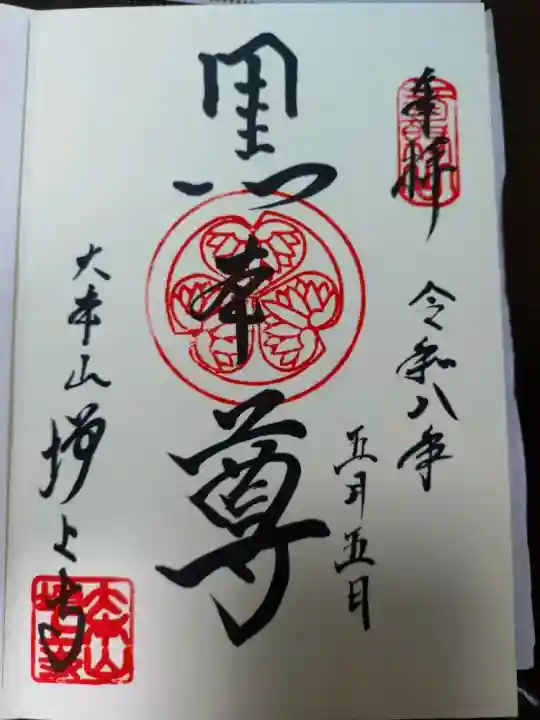 奉拝
令和八年
五月五日
黒本尊
大本山増上寺